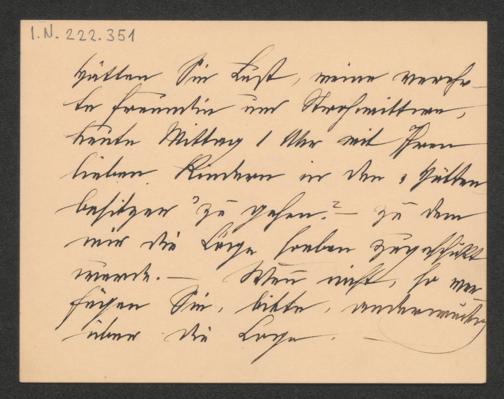 I.N. 222.351
Hätten Sie Lust, meine verehr-
te Freundin und Strohwittwe,
heute Mittag 1 Uhr mit Ihren
lieben Kindern in den „Hütten
besitzer" zu gehen? — zu dem
mir die Loge soeben zugeschickt
wurde. — Wenn nicht, so ver
fügen Sie, bitte, anderweitig
über die Loge. —